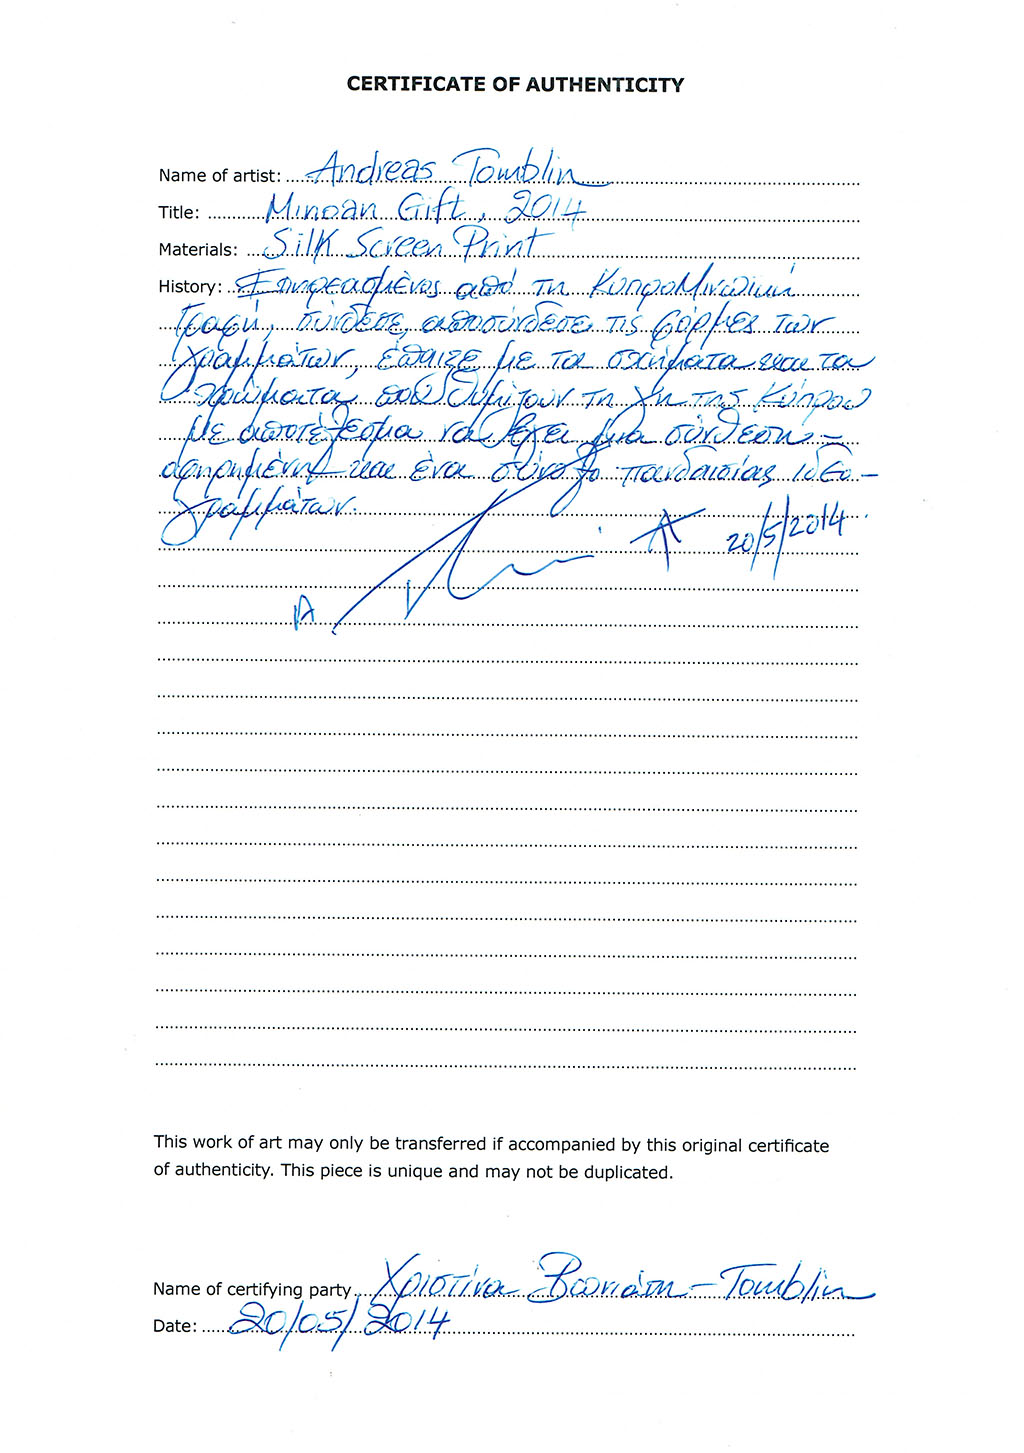 CERTIFICATE OF AUTHENTICITY
Name of artist: Andreas Tomblin
Title: Minoan Gift, 2014
Materials: Silk Screen Print
History: Επηρεασμένος από τη ΚυπροΜινωική
Γραφή, σύνδεσε, αποσύνδεσε τις φόρμες των
γραμμάτων, έπαιξε με τα σχήματα και τα
χρώματα που θυμίζουν τη γη της Κύπρου
με αποτέλεσμα να βγει μια σύνθεση
αφηρημένη και ένα σύνολο πανδαισίας ιδεο-
γραμμάτων.
20/5/2014
This work of art may only be transferred if accompanied by this original certificate
of authenticity. This piece is unique and may not be duplicated.
Name of certifying party Χριστίνα - Tomblin
Date: 20/05/2014